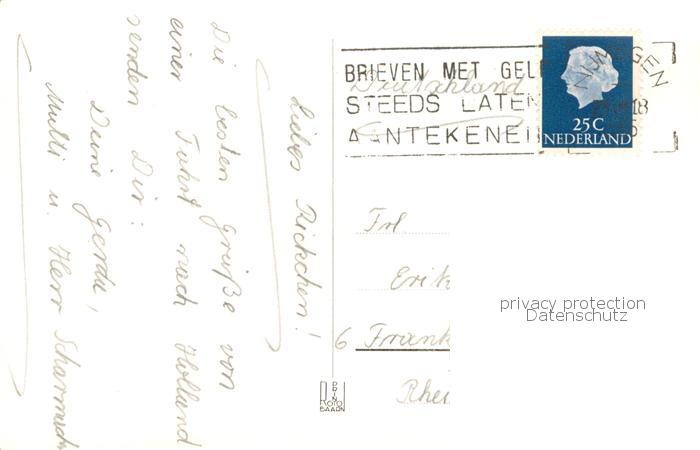 Liebes Rickchen!
Die besten Grüße von
einer Fahrt nach Holland
senden Dir:
Deine Gerda,
Mutti u. Herr
BRIEVEN MET GEL
STEEDS LATEN
AANTEKENEN
NIJMEGEN
18
25C
NEDERLAND
Deutschland
Frl
Erik
6 Frank
Rhei
privacy protection
Datenschutz
PRINT
FOTO
BAARN